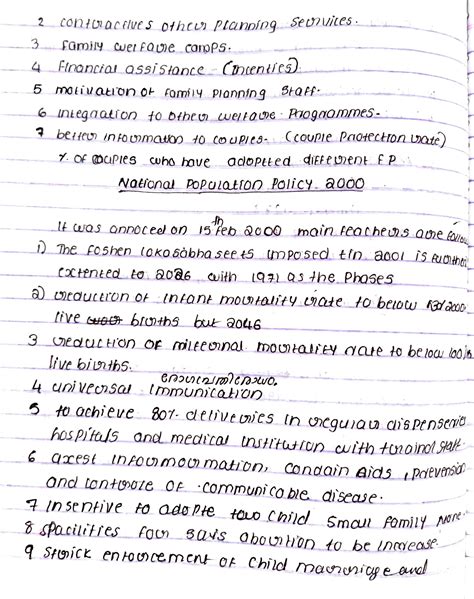 2 contraactives other planning services.
3 family welfare camps.
4 Financial assistance (Incenties)
5 motivation of family planning staff.
6 integnation to other welfare Programmes.
7 better information to couples. (couple Protection rate)
% of couples who have adoptted different F.P
National Population Policy 2000
It was annoced on 15th Feb 2000 main feachers are
1) The foshen Lokosabha seets imposed tin 2001 is
extented to 2026 with 1971 as the Phases
2) reduction of infant mortality rate to below
live births but 2046
3 reduction of miternal mortality rate to below 100
live births.
4 universal Immunication
5 to achieve 80% deliveries in regular dispenseries
hospitals and medical institution with staff.
6 axest information, condain Aids, Prevension
and controle of communicable disease.
7 Insentive to adopte two child small family
8 spacilities for says abortion to be increase.
9 strick enforcement of child marriage and